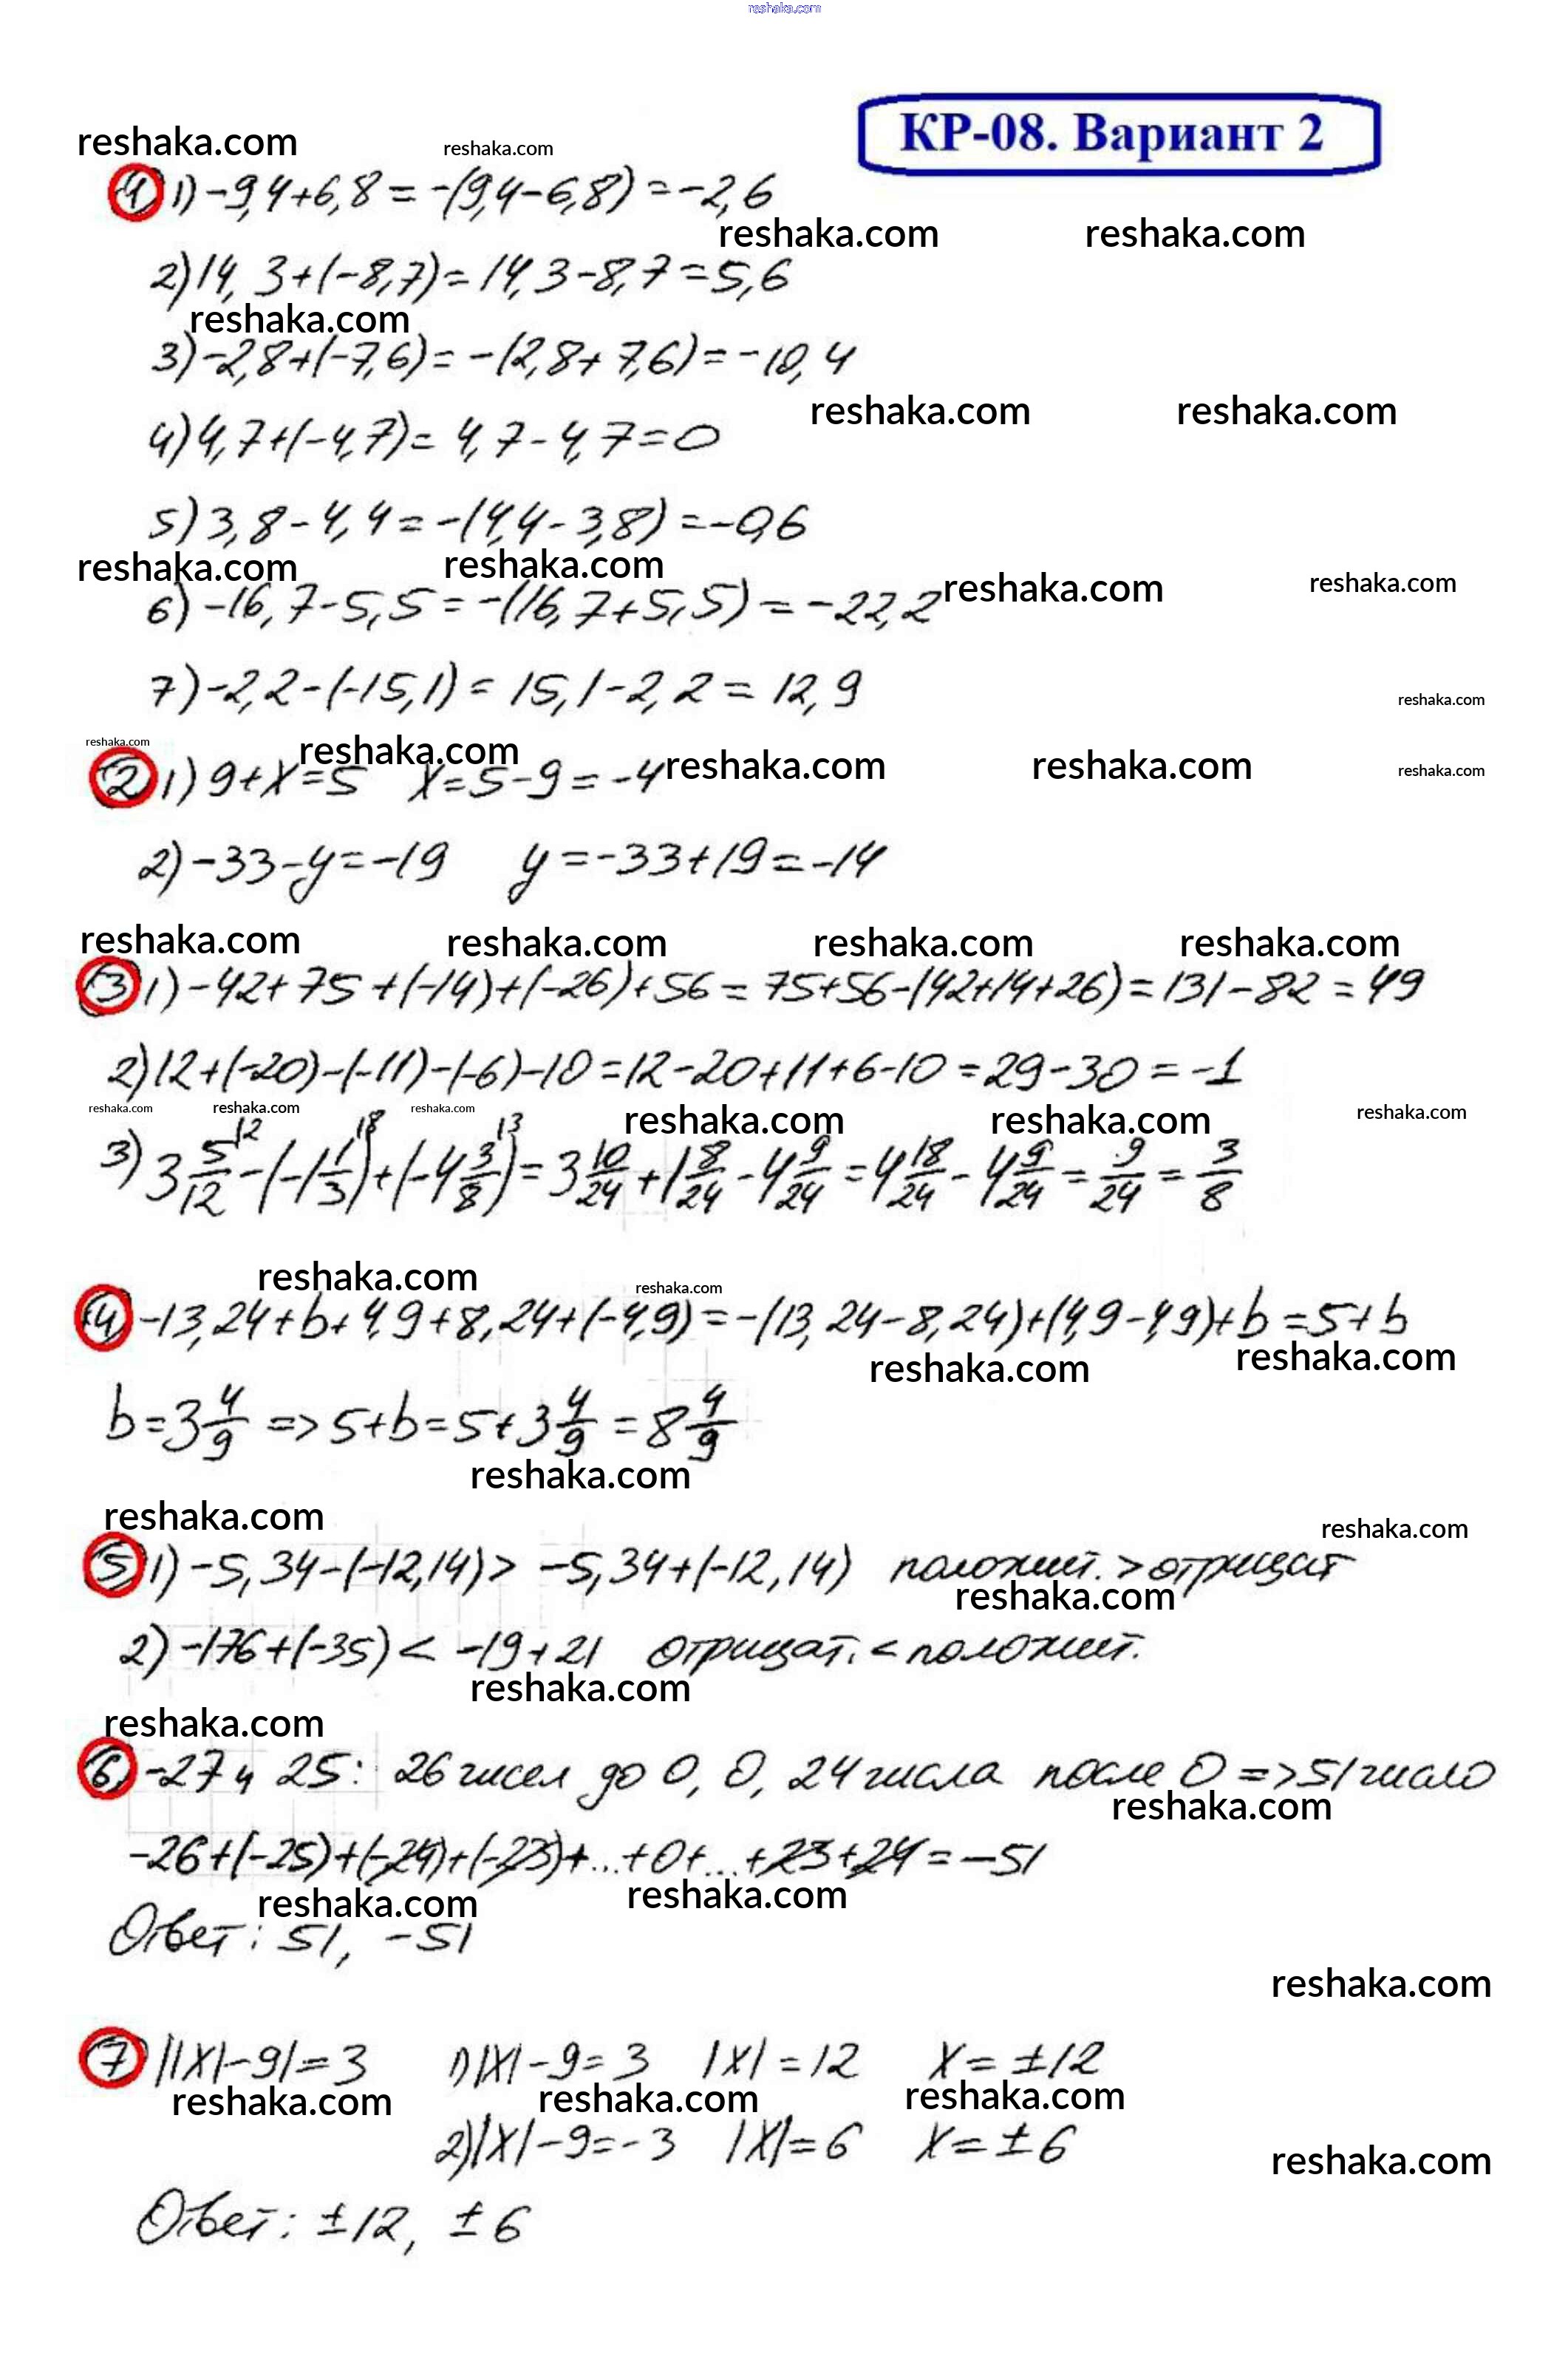 reshaka.com
КР-08. Вариант 2
reshaka.com reshaka.com
1 1) -9,4+6,8=-(9,4-6,8)=-2,6
reshaka.com reshaka.com
2) 14,3+(-8,7)=14,3-8,7=5,6
reshaka.com
3) -2,8+(-7,6)=-(2,8+7,6)=-10,4
reshaka.com reshaka.com
4) 4,7+(-4,7)=4,7-4,7=0
5) 3,8-4,4=-(4,4-3,8)=-0,6
reshaka.com reshaka.com reshaka.com reshaka.com
6) -16,7-5,5=-(16,7+5,5)=-22,2
7) -2,2-(-15,1)=15,1-2,2=12,9
reshaka.com
reshaka.com reshaka.com reshaka.com reshaka.com reshaka.com
2 1) 9+x=5 x=5-9=-4
2) -33-y=-19 y=-33+19=-14
reshaka.com reshaka.com reshaka.com reshaka.com
3 1) -42+75+(-14)+(-26)+56=75+56-(42+14+26)=131-82=49
2) 12+(-20)-(-11)-(-6)-10=12-20+11+6-10=29-30=-1
reshaka.com reshaka.com reshaka.com reshaka.com reshaka.com reshaka.com
3) 3 5/12 \12 -(-1 1/3)\18 +(-4 3/8)\13 =3 10/24+1 8/24-4 9/24=4 18/24-4 9/24=9/24=3/8
reshaka.com reshaka.com
4 -13,24+b+4,9+8,24+(-4,9)=-(13,24-8,24)+(4,9-4,9)+b=5+b
reshaka.com reshaka.com
b=3 4/9 => 5+b=5+3 4/9=8 4/9
reshaka.com
reshaka.com reshaka.com
5 1) -5,34-(-12,14)> -5,34+(-12,14) положит.>отрицат
reshaka.com
2) -176+(-35)< -19+21 отрицат.<положит.
reshaka.com
reshaka.com
6 -27 и 25: 26 чисел до 0, 0, 24 числа после 0 => 51 число
reshaka.com
-26+(-25)+(-24)+(-23)+...+0+...+23+24=-51
reshaka.com reshaka.com
Ответ: 51, -51
reshaka.com
7 ||x|-9|=3 1) |x|-9=3 |x|=12 x=±12
reshaka.com reshaka.com reshaka.com
2) |x|-9=-3 |x|=6 x=±6
reshaka.com
Ответ: ±12, ±6